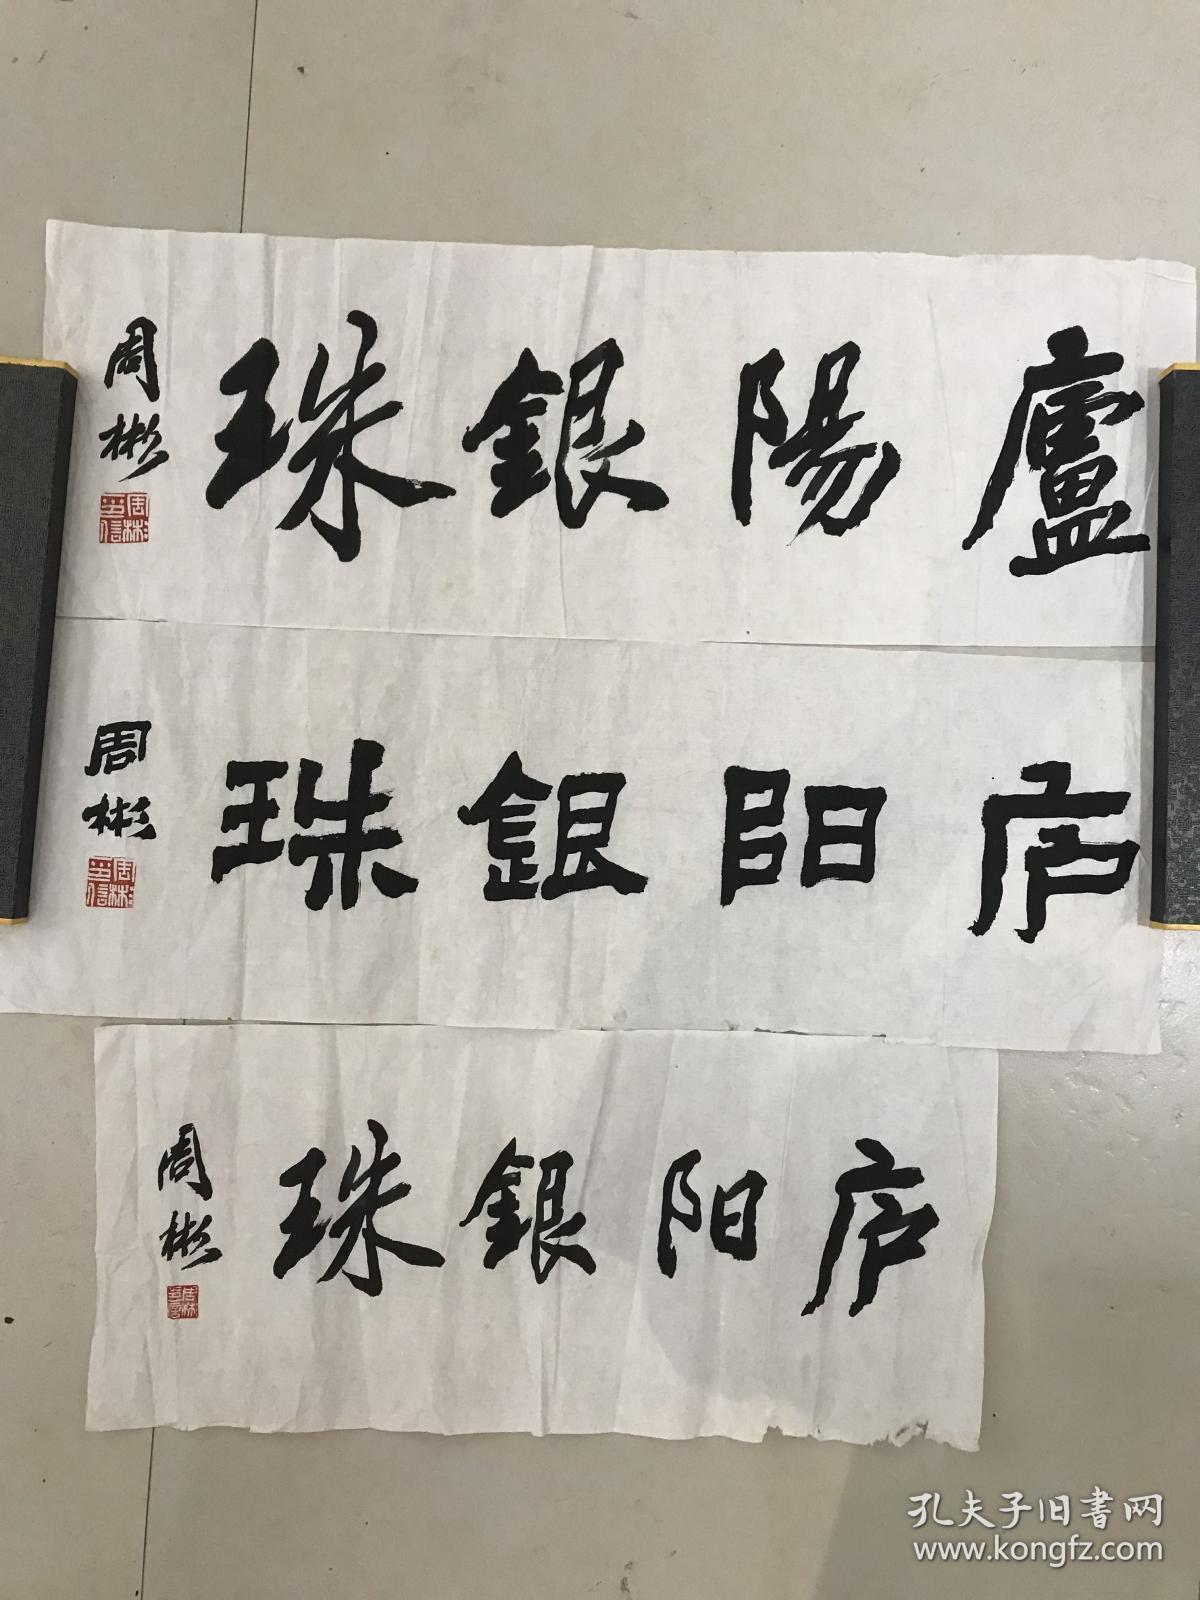 廬陽銀珠
周彬
周彬印信
庐阳銀珠
周彬
周彬印信
庐阳銀珠
周彬
孔夫子旧书网
www.kongfz.com